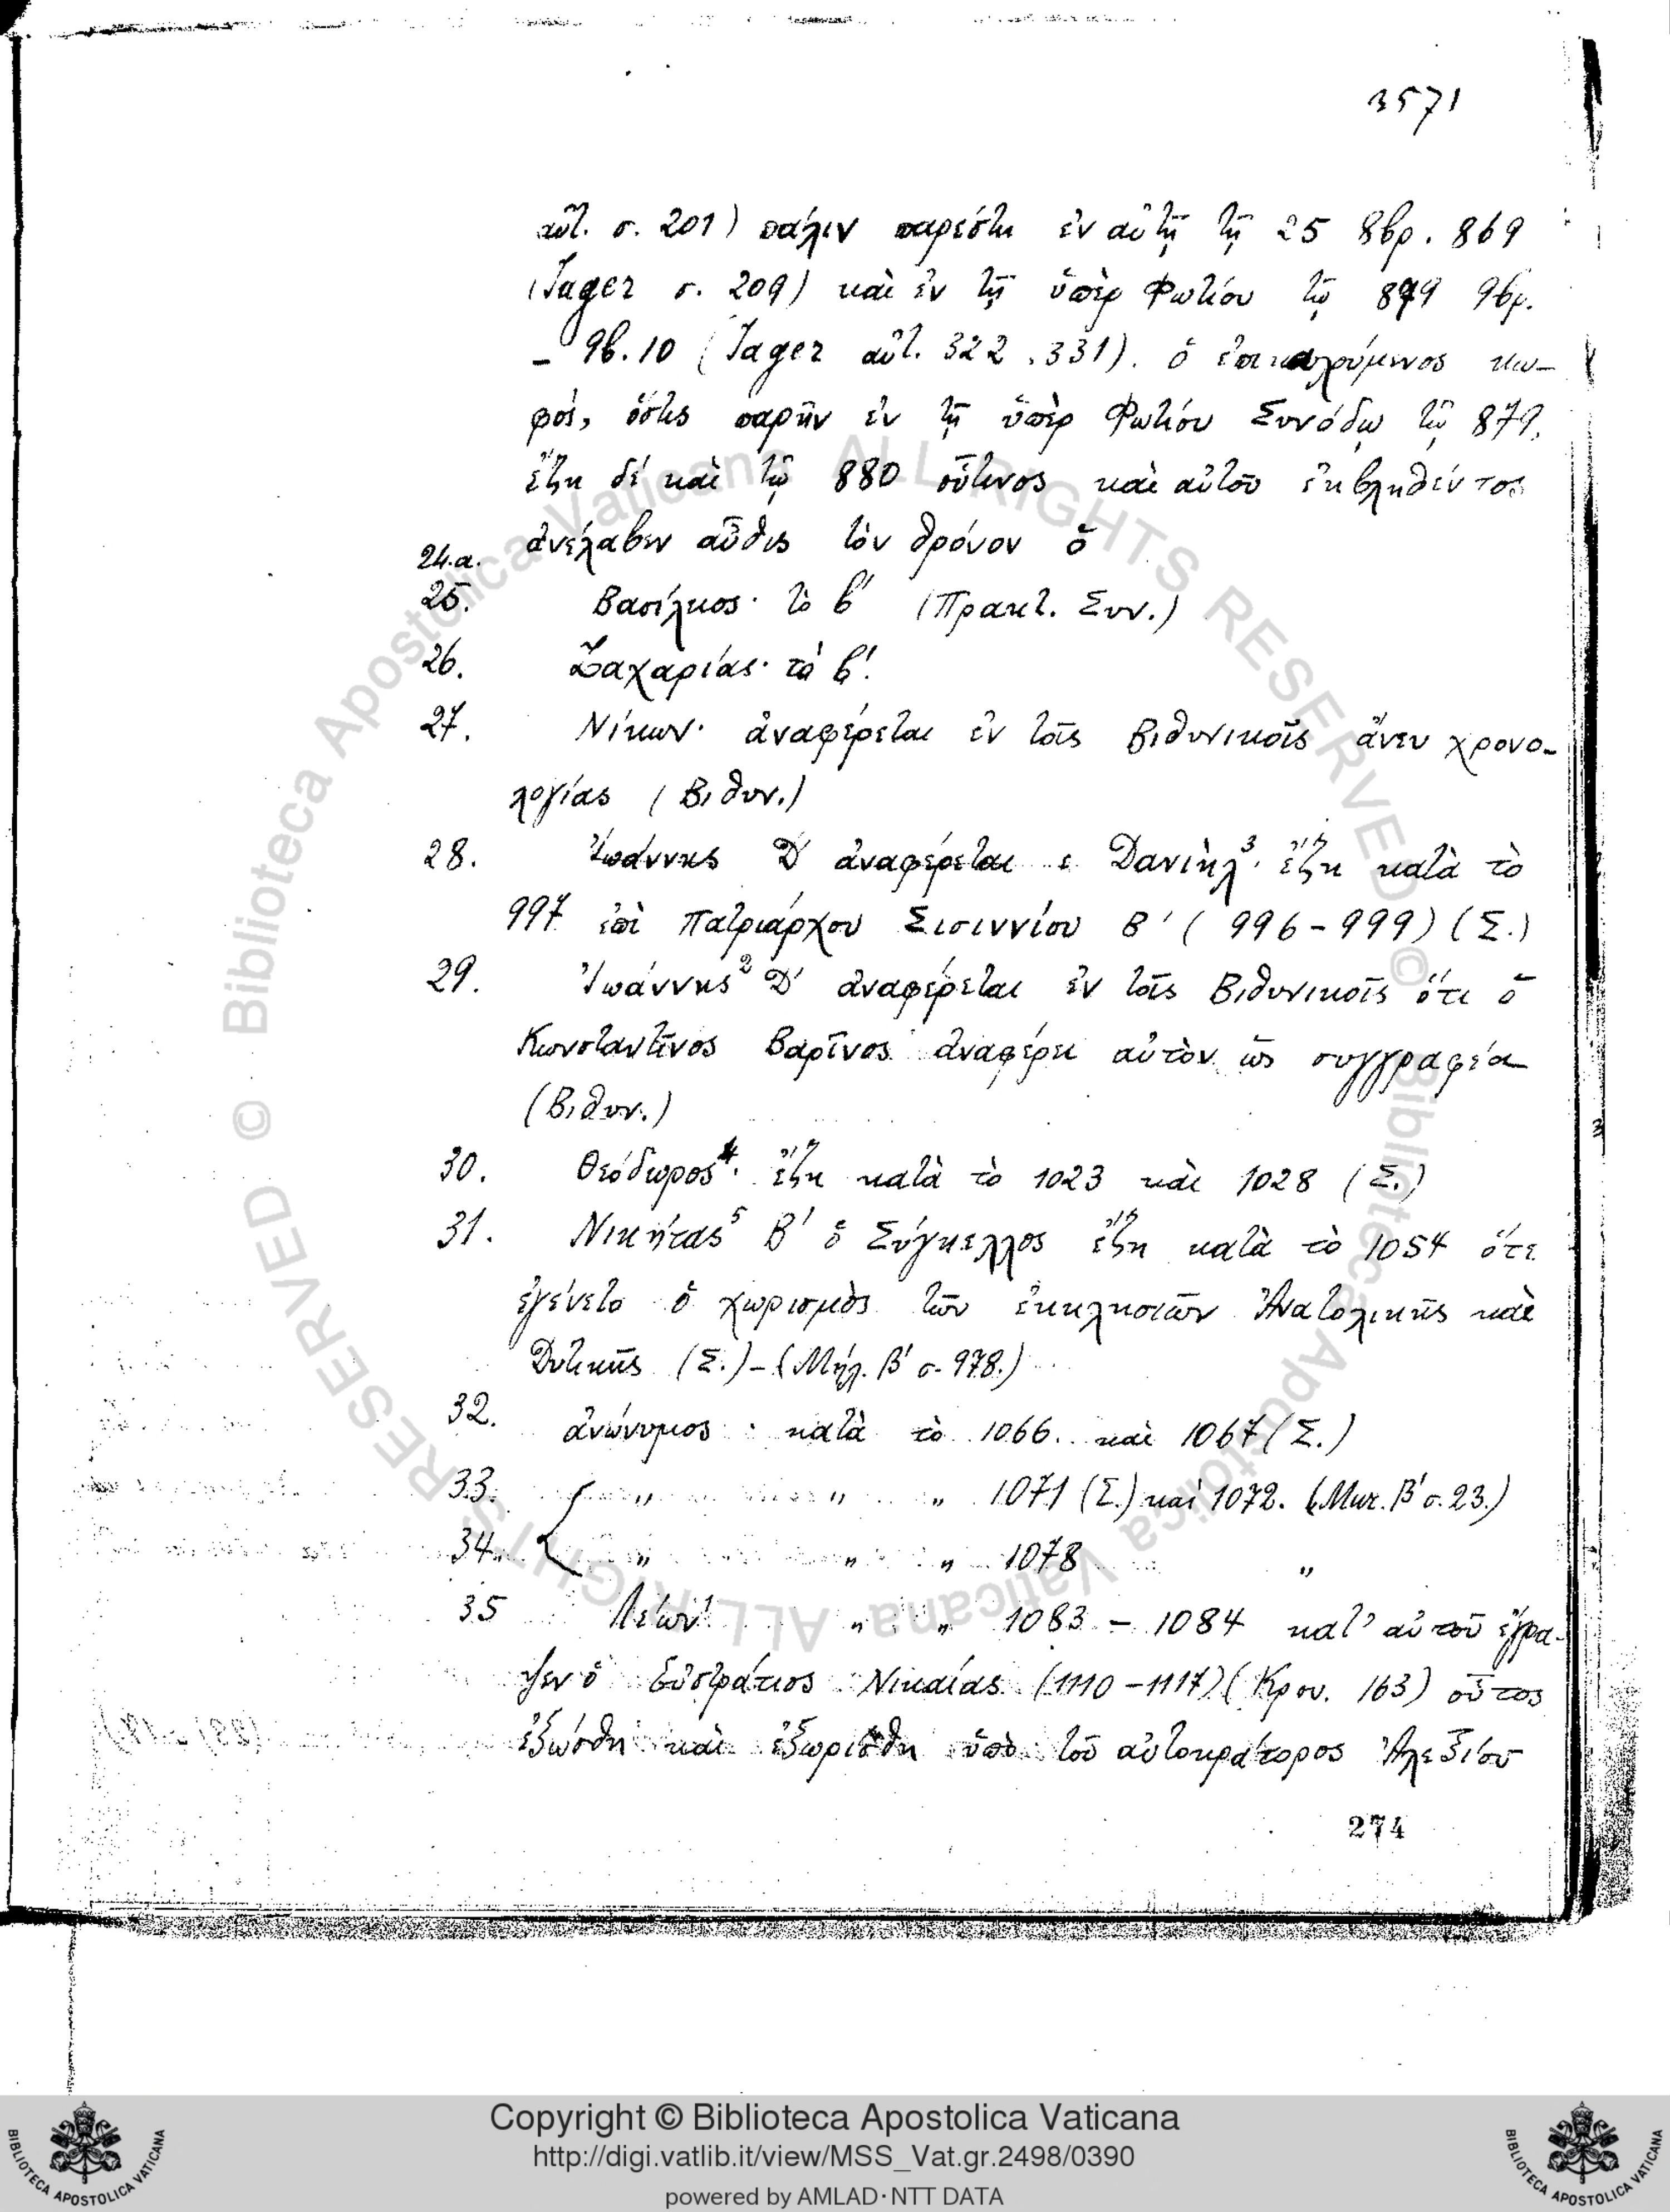 3571
αὐτ. σ. 201) πάλιν παρέστη ἐν αὐτῇ τῇ 25 8βρ. 869
(Jager σ. 209) καὶ ἐν τῇ ὑπὲρ Φωτίου τῷ 879 9βρ.
– 9β. 10 (Jager αὐτ. 322. 331). ὁ ἐπικαλούμενος κω-
φός, ὅστις παρῆν ἐν τῇ ὑπὲρ Φωτίου Συνόδῳ τῷ 879.
ἔζη δέ καὶ τῷ 880 οὕτινος καὶ αὐτοῦ ἐκβληθέντος
24.α. ἀνέλαβεν αὖθις τὸν θρόνον ὁ
25. Βασίλειος· τὸ β' (Πρακτ. Συν.)
26. Ζαχαρίας· τὸ β'.
27. Νίκων· ἀναφέρεται ἐν τοῖς Βιθυνικοῖς ἄνευ χρονο-
λογίας (Βιθυν.)
28. Ἰωάννης Δ' ἀναφέρεται Δανιὴλ³· ἔζη κατὰ τὸ
997 ἐπὶ Πατριάρχου Σισιννίου Β' (996-999) (Σ.)
29. Ἰωάννης² Δ' ἀναφέρεται ἐν τοῖς Βιθυνικοῖς ὅτι ὁ
Κωνσταντῖνος Βαρῖνος ἀναφέρει αὐτὸν ὡς συγγραφέα
(Βιθυν.)
30. Θεόδωρος⁴· ἔζη κατὰ τὸ 1023 καὶ 1028 (Σ.)
31. Νικήτας⁵ Β' ὁ Σύγκελλος ἔζη κατὰ τὸ 1054 ὅτε
ἐγένετο ὁ χωρισμὸς τῶν ἐκκλησιῶν Ἀνατολικῆς καὶ
Δυτικῆς (Σ.) – (Μήλ. Β' σ. 978.)
32. ἀνώνυμος· κατὰ τὸ 1066. καὶ 1067 (Σ.)
33. " " " 1071 (Σ.) καὶ 1072. (Μικ. Β' σ. 23.)
34. " " " 1078 "
35 Λέων· " " 1083 – 1084 κατ' αὐτοῦ ἔγρα-
ψεν ὁ Εὐστράτιος Νικαίας (1110 – 1117) (Κρου. 163) οὗτος
ἐξώσθη καὶ ἐξωρίσθη ὑπὸ τοῦ αὐτοκράτορος Ἀλεξίου
274
© Biblioteca Apostolica Vaticana ALL RIGHTS RESERVED
© Biblioteca Apostolica Vaticana ALL RIGHTS RESERVED
Copyright © Biblioteca Apostolica Vaticana
http://digi.vatlib.it/view/MSS_Vat.gr.2498/0390
powered by AMLAD·NTT DATA
BIBLIOTECA APOSTOLICA VATICANA
BIBLIOTECA APOSTOLICA VATICANA